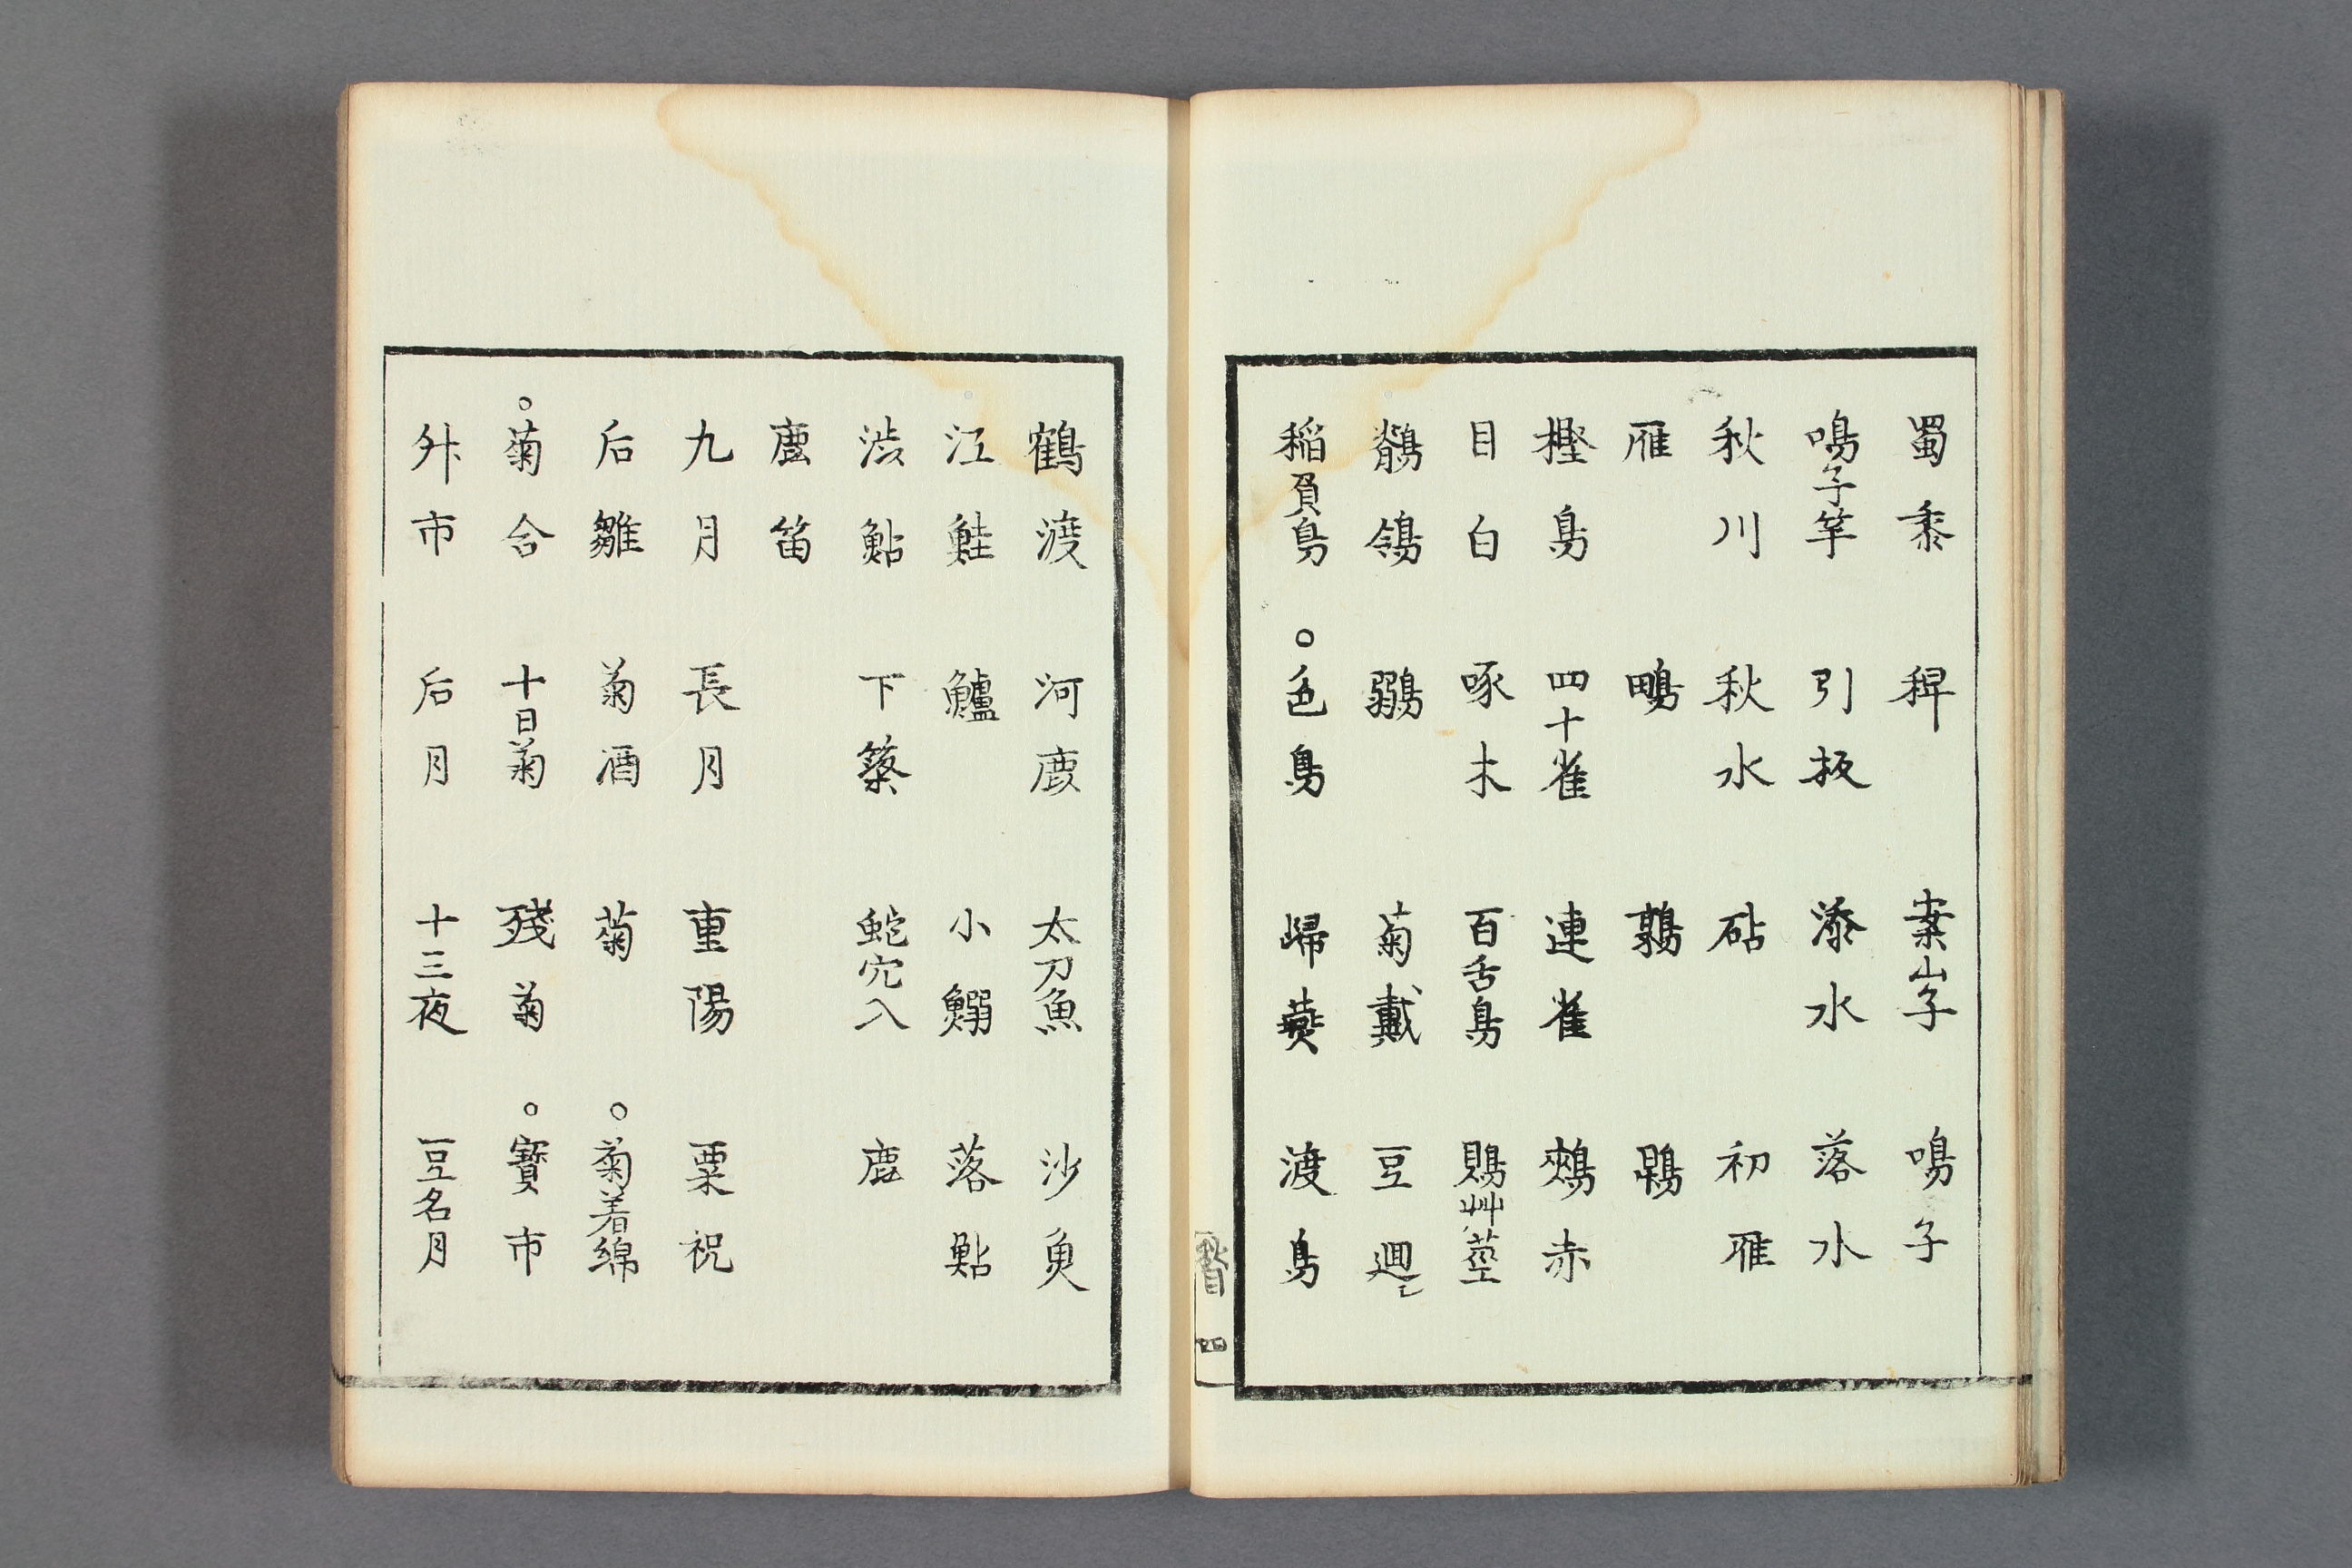 蜀黍　稗　案山子　鳴子
鳴子竿　引板　添水　落水
秋川　秋水　砧　初雁
雁　鴫　鶉　鵯
樫鳥　四十雀　連雀　鶫赤
目白　啄木　百舌鳥　鵙艸莖
鶺鴒　鶸　菊戴　豆廻シ
稲負鳥　○色鳥　帰燕　渡鳥
秋目　四
鶴渡　河鹿　太刀魚　沙魚
江鮭　鱸　小鰯　落鮎
渋鮎　下簗　蛇穴入　鹿
鹿笛
九月　長月　重陽　栗祝
后雛　菊酒　菊　○菊着綿
○菊合　十日菊　残菊　○寳市
升市　后月　十三夜　豆名月